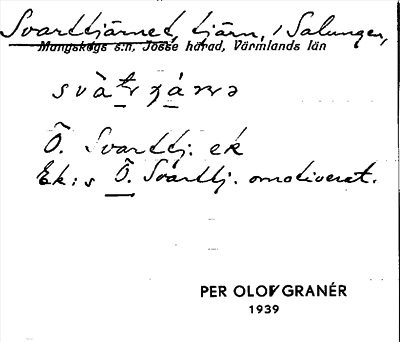 Svarttjärnet, tjärn, i Salungen,
Mangskogs s:n, Jösse härad, Värmlands län
Ö. Svarttj. ek
Ek:s Ö. Svarttj. omotiverat.
PER OLOF GRANÉR
1939